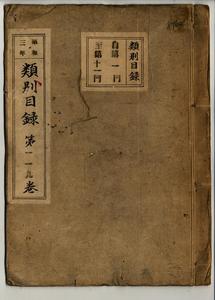 類別目録
自第一門
至第十一門
三年
類別目録 第一一九巻